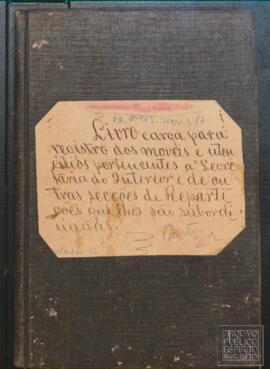 Livro carga para
registro dos moveis e uten
silios pertencentes a Secre
taria do Interior e de ou
tras secções de Reparti
ções que lhes são subordi
nadas.
ARQUIVO
PÚBLICO
ESPÍRITO
SANTO